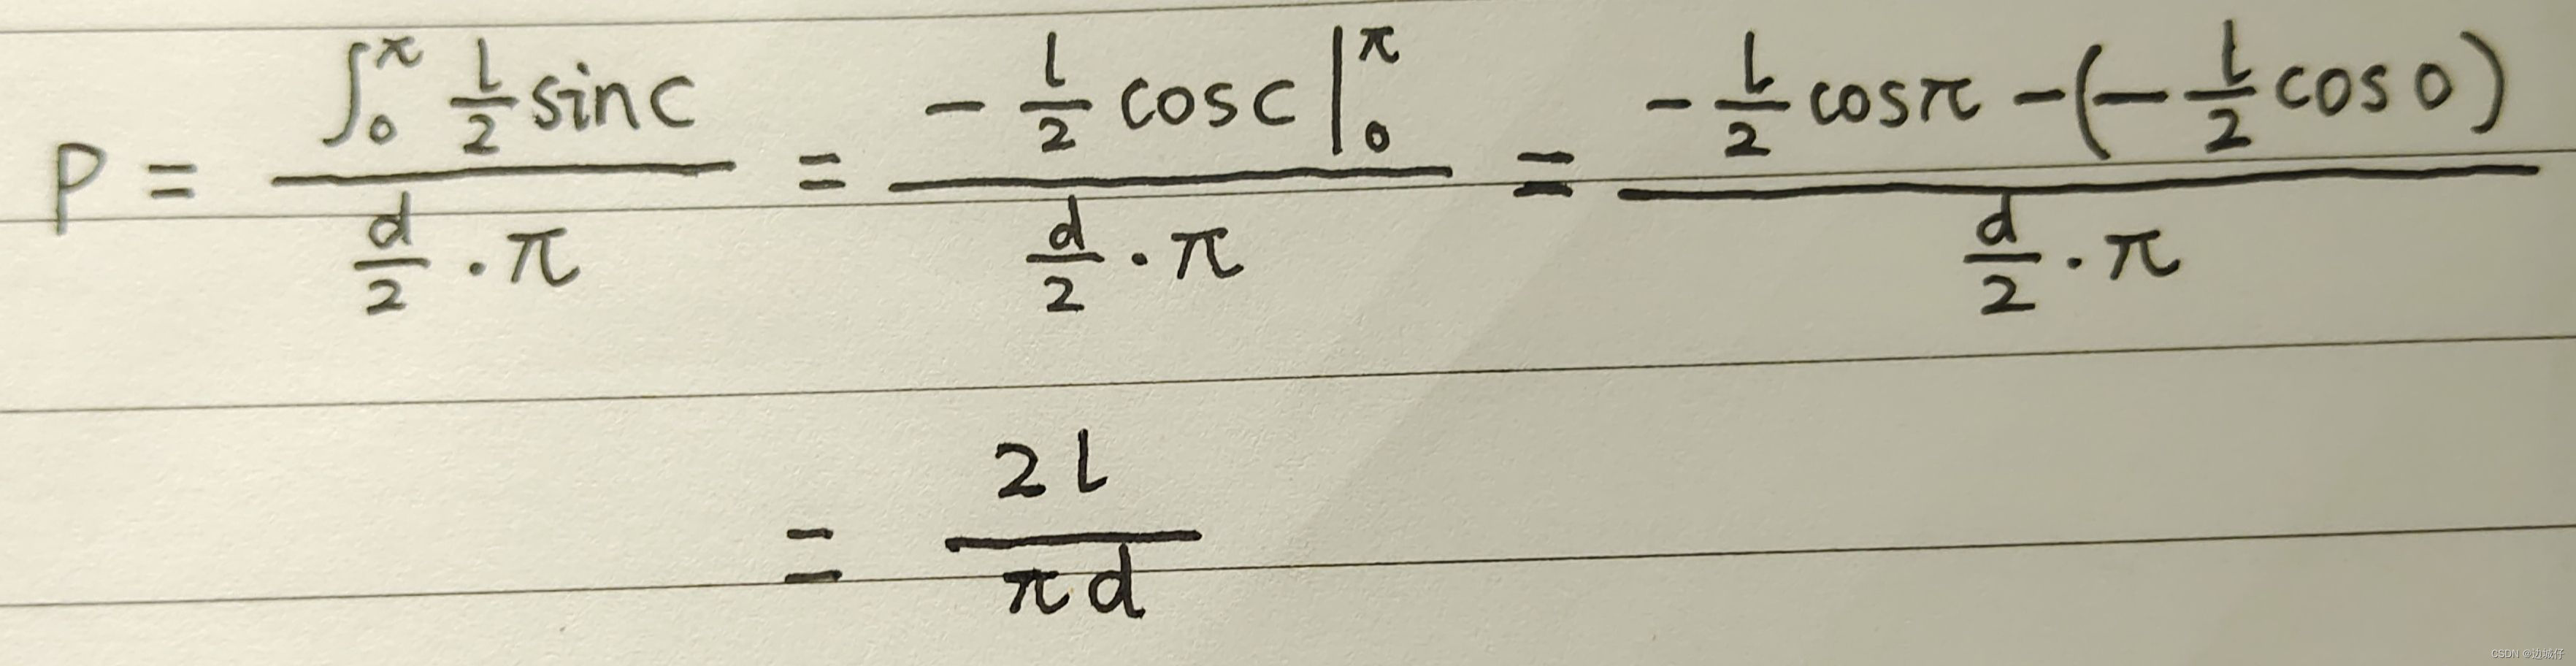 P = \frac{\int_0^π \frac{l}{2} sin c}{\frac{d}{2} · π} = \frac{-\frac{l}{2} cos c |_0^π}{\frac{d}{2} · π} = \frac{-\frac{l}{2} cos π - (-\frac{l}{2} cos 0)}{\frac{d}{2} · π}
= \frac{2l}{πd}
CSDN @边城仔